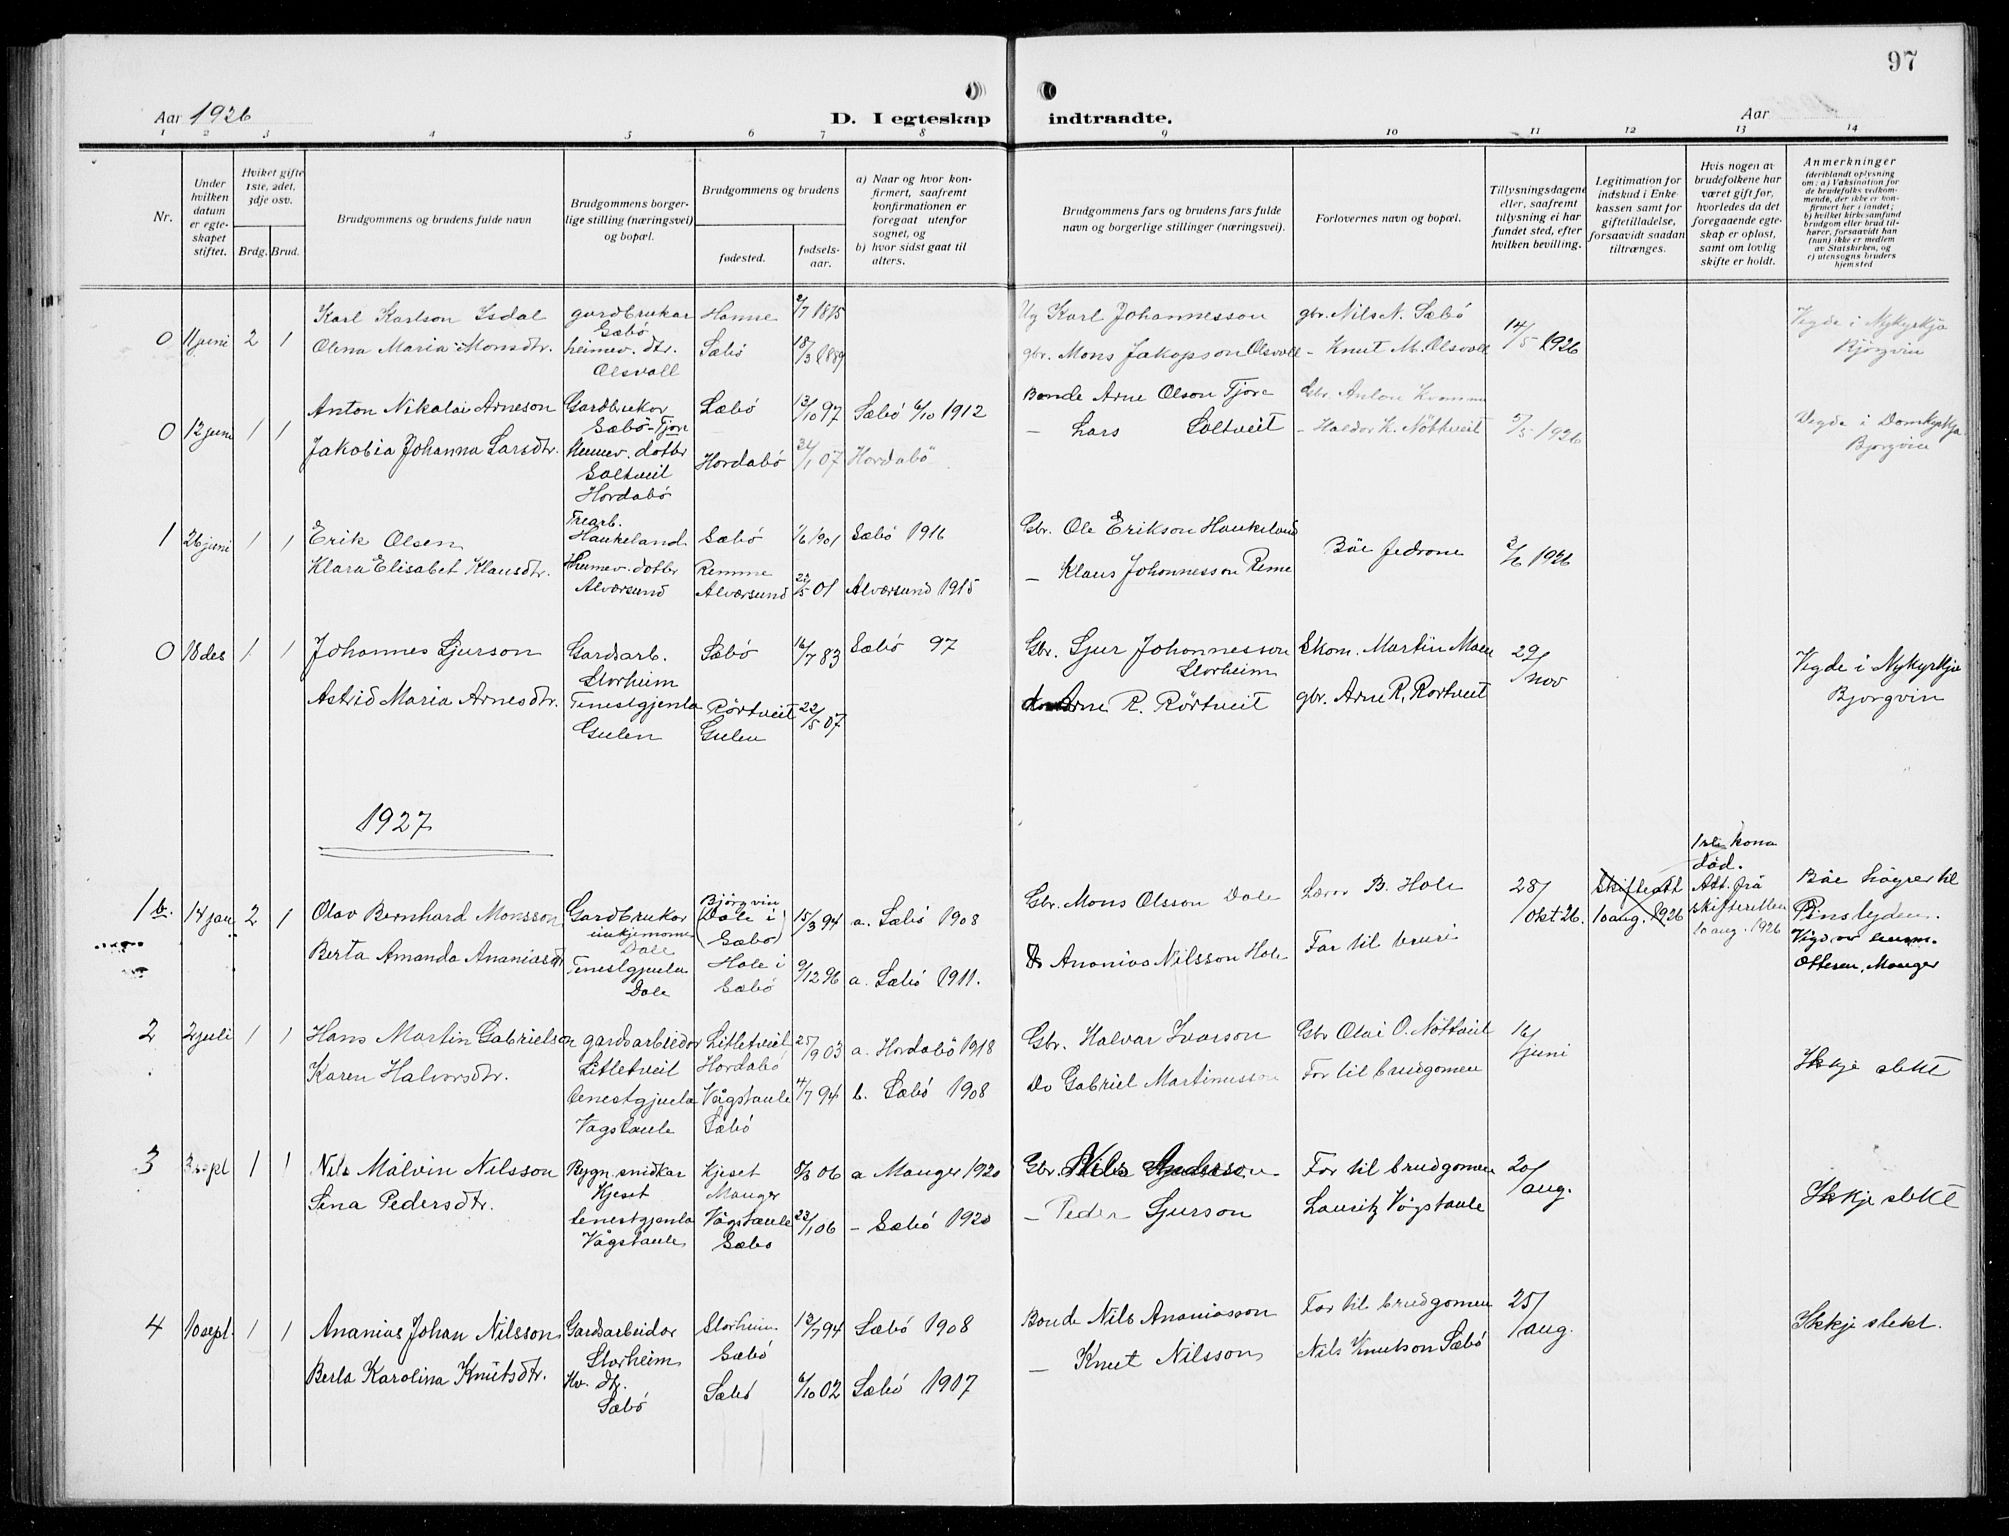 97
Aar 1926
D. I egteskap indtraadte.
Aar
1 2 3 4 5 6 7 8 9 10 11 12 13 14
Nr.
Under
hvilken
datum
er egte-
skapet
stiftet.
Hviket gifte
1ste, 2det,
3dje osv.
Brdg. Brud.
Brudgommens og brudens fulde navn
Brudgommens borger-
lige stilling (næringsvei)
og bopæl.
Brudgommens og brudens
fødested.
fødsels-
aar.
a) Naar og hvor kon-
firmert, saafremt
konfirmationen er
foregaat utenfor
sognet, og
b) hvor sidst gaat til
alters.
Brudgommens fars og brudens fars fulde
navn og borgerlige stillinger (næringsvei).
Forlovernes navn og bopæl.
Tillysningsdagene
eller, saafremt
tillysning ei har
fundet sted, efter
hvilken bevilling.
Legitimation for
indskud i Enke-
kassen samt for
giftetilladelse,
forsaavidt saadan
tiltrænges.
Hvis nogen av
brudefolkene har
været gift før,
hvorledes da det
foregaaende egte-
skap er opløst,
samt om lovlig
skifte er holdt.
Anmerkninger
(deriblandt oplysning
om: a) Vaksination for
de brudefolks vedkom-
mende, der ikke er kon-
firmert her i landet;
b) hvilket kirkesamfund
brudgom eller brud til-
hører, forsaavidt han
(hun) ikke er medlem
av Statskirken, og
c) utensogns bruders
hjemsted
0 11 juni 2 1
Karl Karlson Isdal
Olena Maria Monsdtr.
gardbrukar
Sæbö
heimev. dtr.
Olsvoll
Hamre
Sæbö
2/7 1875
18/3 1889
Karl Johannesson
gbr. Mons Jakopson Olsvoll
gbr. Nils N. Sæbö
- Knut M. Olsvoll
14/5 1926
Vigde i Nykyrkja
Bjørgvin
0 12 juni 1 1
Anton Nikolai Arneson
Jakobia Johanna Larsdtr.
Gardbrukar
Sæbö-Tjore
Heimev. dotter
Soltveit
Hordabö
Sæbö
Hordabö
13/10 97
/1 07
Sæbö 6/10 1912
Hordabö
Bonde Arne Olson Tjore
- Lars Soltveit
Gbr. Anton
- Haldor K. Nöttveit
/5 1926
Vigde i Domkyrkja
Bjorgvin
1 26 juni 1 1
Erik Olsen
Klara Elisabet Klausdtr.
Trearb.
Haukeland
Heimev. dotter
Alversund
Sæbö
Remme
Alversund
1/6 1901
22/5 01
Sæbö 1916
Alversund 1915
Gbr. Ole Erikson Haukeland
- Klaus Johannesson Reme
Båe fedrone
3/6 1926
0 18 des 1 1
Johannes Sjurson
Astrid Maria Arnesdtr.
Gardsarb.
Storheim
Tenestgjenta
Gulen
Sæbö
Rörtveit
Gulen
16/7 83
22/5 07
Sæbö 97
Gbr. Sjur Johannesson
Storheim
Arne R. Rörtveit
Skom. Martin
gbr. Arne R. Rortveit
29/nov
Vigde i Nykyrkja
Bjorgvin
1927
1 b. 14 jan 2 1
Olav Bernhard Monsson
Berta Amanda Ananiasdtr
Gardbrukar
enkjemann
Dale
Tenestgjenta
Dale
Bjørgvin
(Dale i
Sæbö)
Hole i
Sæbö
15/3 94
9/12 96
a. Sæbö 1908
a. Sæbö 1911.
Gbr. Mons Olsson Dale
Ananias Nilsson Hole
Lærar B. Hole
Far til bruri
28/okt 26.
Skifteatt
10 aug. 1926
1ste kona
död.
Att. frå
skifteretten
10 aug. 1926
Båe höyrer til
Pinslyden.
Vigd av
Ottesen, Manger
2 2 juli 1 1
Hans Martin Gabrielson
Karen Halvorsdtr.
gardsarbeidar
Litletveit
tenestgjenta
Vågstaule
Litletveit
Hordabö
Vågstaule
Sæbö
25/9 03
4/7 94
a. Hordabö 1918
b. Sæbö 1908
Gbr. Halvar Ivarson
Do Gabriel Martinusson
Gbr Olai O. Nöttveit
Far til brudgomen
16/juni
Ikkje slekt
3 3 sept 1 1
Nils Målvin Nilsson
Sina Pedersdtr.
Bygn. snidkar
Kjeset
tenestgjenta
Vågstaule
Kjeset
Manger
Vågstaule
Sæbö
8/3 06
23/1 06
a Manger 1920
- Sæbö 1920
Gbr. Nils Anderson
- Peder Sjurson
Far til brudgomen
Lauritz Vågstaule
20/aug.
Ikkje slekt
4 10 sept. 1 1
Ananias Johan Nilsson
Berta Karolina Knutsdtr.
Gardsarbeidar
Storheim
Hv. dtr.
Sæbö
Storheim
Sæbö
Sæbö
13/7 94
6/10 02
Sæbö 1908
Sæbö 1917
Bonde Nils Ananiasson
- Knut Nilsson
Far til brudgomen
Nils Knutson Sæbö
25/aug.
Ikkje slekt.